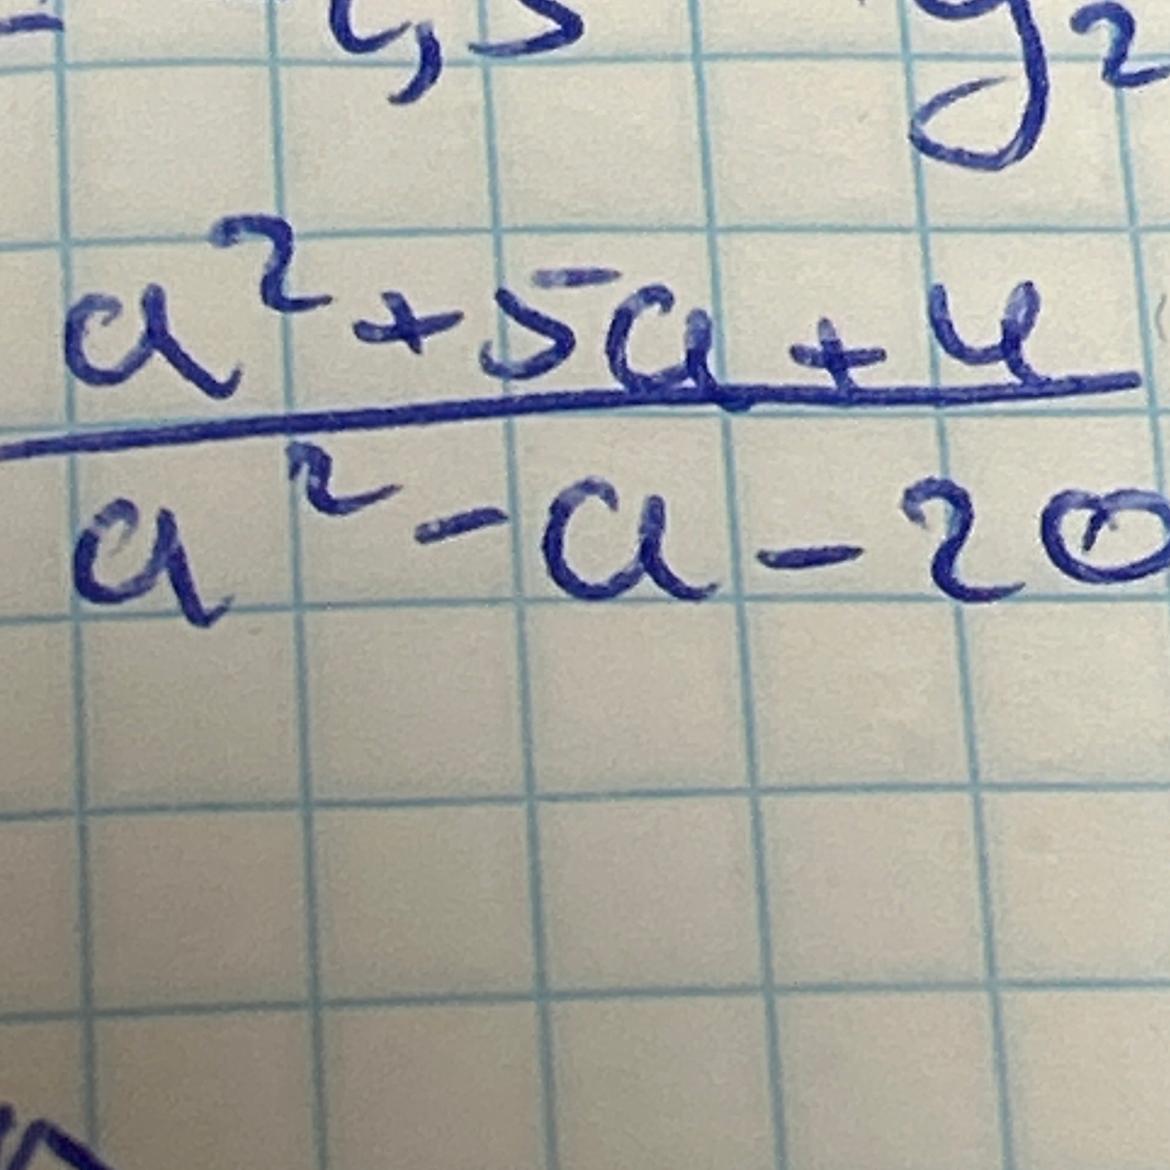 y₂
a² + 5a + 4
a² - a - 20